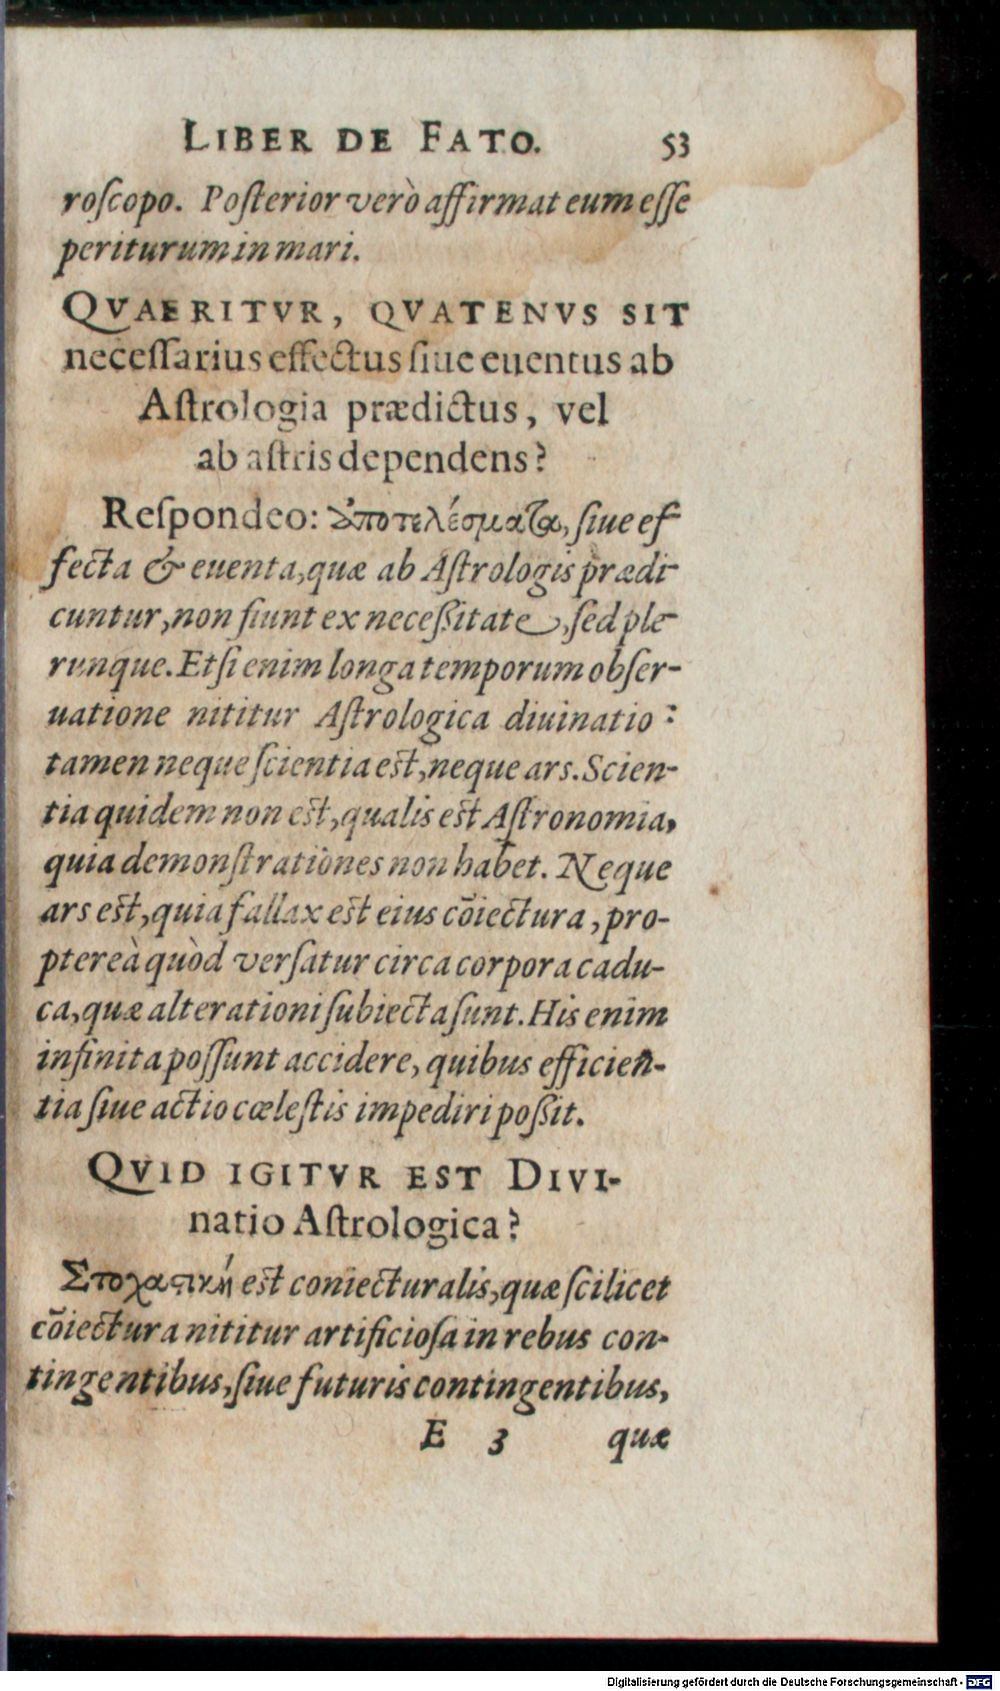 LIBER DE FATO. 53
roſcopo. Poſterior verò affirmat eum eſſe
periturum in mari.
QVAERITVR, QVATENVS SIT
neceſſarius effectus ſiue euentus ab
Aſtrologia prædictus, vel
ab aſtris dependens?
Reſpondeo: Ἀποτελέσματα, ſiue ef-
fecta & euenta, quæ ab Aſtrologis prædi-
cuntur, non fiunt ex neceſſitate, ſed ple-
runque. Etſi enim longa temporum obſer-
uatione nititur Aſtrologica diuinatio:
tamen neque ſcientia eſt, neque ars. Scien-
tia quidem non eſt, qualis eſt Aſtronomia,
quia demonſtrationes non habet. Neque
ars eſt, quia fallax eſt eius cōiectura, pro-
ptereà quòd verſatur circa corpora cadu-
ca, quæ alterationi ſubiecta ſunt. His enim
infinita poſſunt accidere, quibus efficien-
tia ſiue actio cœleſtis impediri poſſit.
QVID IGITVR EST DIVI-
natio Aſtrologica?
Στοχαϛικὴ eſt coniecturalis, quæ ſcilicet
cōiectura nititur artificioſa in rebus con-
tingentibus, ſiue futuris contingentibus,
E 3 quæ
Digitalisierung gefördert durch die Deutsche Forschungsgemeinschaft - DFG